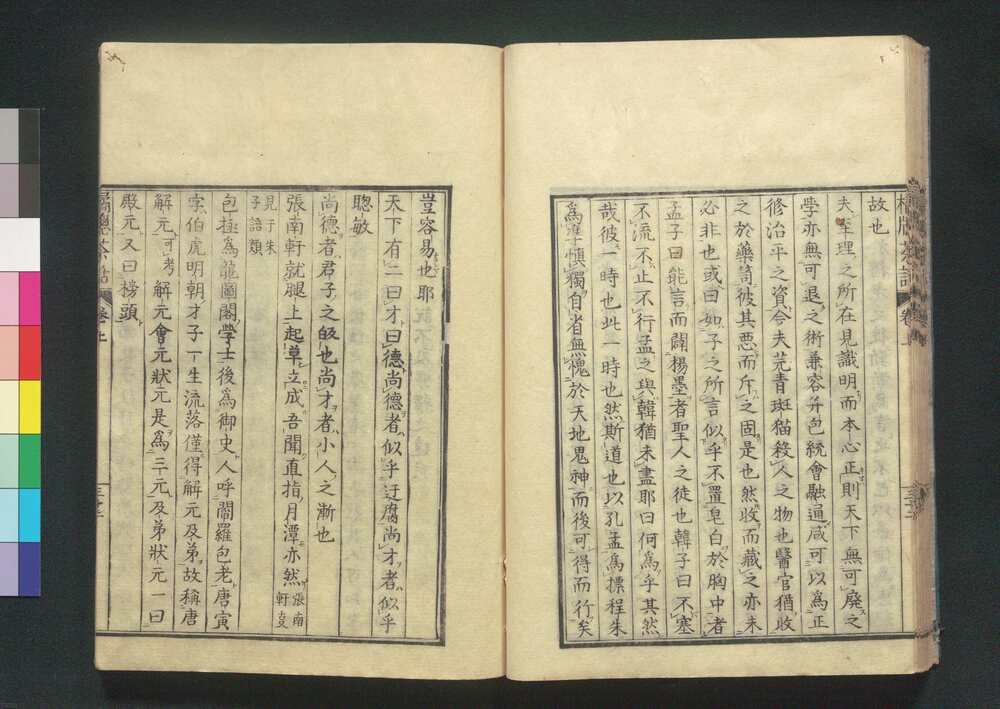 故也
夫至理之所在見識明而本心正則天下無可廢之
學亦無可退之術兼容并包統會融通咸可以為正
修治平之資今夫芫青斑猫殺人之物也醫官猶收
之於藥笥彼其惡而斥之固是也然收而藏之亦未
必非也或曰如子之所言似乎不置皂白於胸中者
孟子曰能言而闢楊墨者聖人之徒也韓子曰不塞
不流不止不行孟之與韓猶未盡耶曰何為乎其然
哉彼一時也此一時也然斯道也以孔孟為標程朱
為準慎獨自省無愧於天地鬼神而後可得而行矣
豈容易也耶
天下有二曰才曰德尚德者似乎迂腐尚才者似乎
聰敏
尚德者君子之皈也尚才者小人之漸也
張南軒就腿上起草立成吾聞直指月潭亦然張南軒支
見于朱
子語類
包拯為龍圖閣學士後為御史人呼閻羅包老唐寅
字伯虎明朝才子一生流落僅得解元及第故稱唐
解元可考解元會元狀元是為三元及第狀元一曰
殿元又曰榜頭
橘窓茶話 卷上